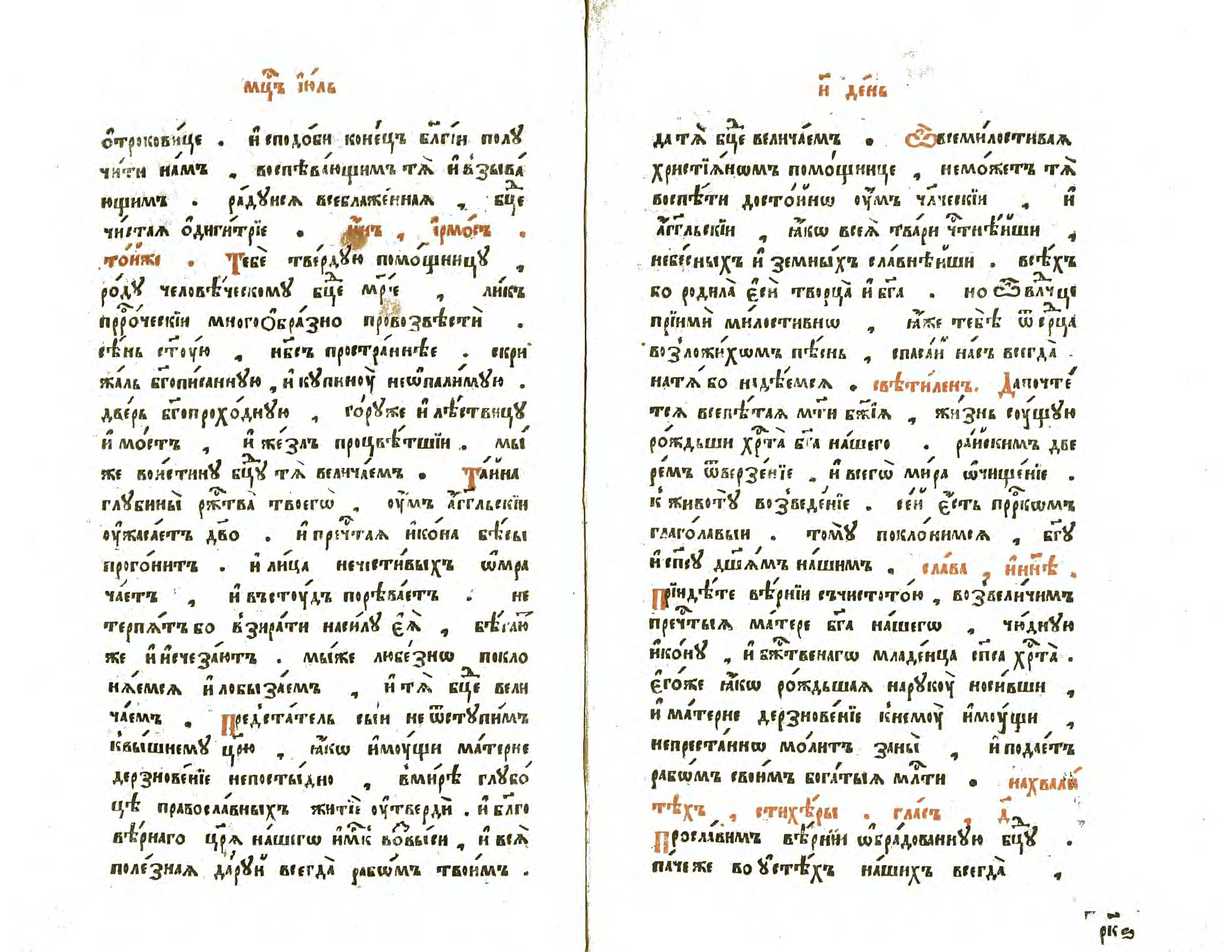 мцⷭ҇ъ і҆ю́ль
ѻ҆трокови́це . и҆ сподо́би коне́цъ бл҃гі́и полꙋ
чи́ти на́мъ , воспѣва́ющимъ тѧ̀ и҆ взыва́
ющимъ . ра́дꙋисѧ всеблаже́ннаѧ , бцⷣе
чи́стаѧ ѻ҆диги́тріе . и҆́нъ , і҆рмо́съ .
то́йже . Тебѐ тве́рдꙋю помо́щницꙋ ,
ро́дꙋ человѣ́ческомꙋ бцⷣе мр҃і́е , ли́къ
прⷪ҇ро́ческіи многоѻ́бразно провозвѣстѝ .
сѣ́нь ст҃ꙋ́ю , нб҃съ простра́ннѣе . скри
жа́ль бг҃опи́саннꙋю , и҆ кꙋпинꙋ̀ неѡ҆пали́мꙋю .
две́рь бг҃опрохо́днꙋю , го́рꙋже и҆ лѣ́ствицꙋ
и҆ мо́стъ , и҆ же́злъ процвѣ́тшїи . мы́
же вои́стинꙋ бцⷣꙋ тѧ̀ велича́емъ . Та́йна
глꙋбины̀ ржⷭ҇тва̀ твоегѡ̀ , ѹ҆́мъ а҆́гг҃льскїи
ѹ҆жаса́етъ дв҃о . и҆ пречⷭ҇таѧ и҆ко́на бѣ́сы
прого́нитъ . и҆ ли́ца нечести́выхъ ѡ҆мра
ча́етъ , и҆ въстꙋ́дъ порѣва́етъ . не
терпѧ́тъ бо взира́ти наси́лꙋ є҆ѧ̀ , бѣ́гаю
же и҆ и҆счеза́ютъ . мы́же любе́знѡ покло
нѧ́емсѧ и҆ лобыза́емъ , и҆ тѧ̀ бцⷣе вели
ча́емъ . Предста́тель сы́и не ѿстꙋ́пимъ
к вы́шнемꙋ цр҃ю̀ , ꙗ҆́кѡ и҆мꙋ́щи ма́терне
дерзнове́нїе непосты́дно , в ми́рѣ глꙋбо́
цѣ̀ правосла́вныхъ житїѐ ѹ҆твердѝ . и҆ бл҃го
вѣ́рнаго цр҃ѧ̀ на́шегѡ и҆́мⷬ҇къ возвы́си , и҆ всѧ̀
поле́знаѧ да́рꙋй всегда̀ рабѡ́мъ твои́мъ .
и҃ де́нь
да тѧ̀ бцⷣе велича́емъ . Ѽ всеми́лостиваѧ
христїѧ́нѡмъ помо́щнице , немо́жетъ тѧ̀
воспѣ́ти досто́йнѡ ѹ҆́мъ чл҃ческїи , и҆
а҆́гг҃льскїи , ꙗ҆́кѡ всеѧ̀ тва́ри чⷭ҇тнѣ́йши ,
небе́сныхъ и҆ земны́хъ сла́внѣйши . всѣ́хъ
бо родила̀ є҆сѝ творца̀ и҆ бг҃а . но ѽ влⷣчце
прїимѝ ми́лостивнѡ , ꙗ҆́же тебѣ̀ ѿ се́рца
возложи́хомъ пѣ́снь , спаса́й на́съ всегда̀ .
на тѧ́ бо надѣ́емсѧ . свѣти́ленъ . Да почте́
тсѧ всепѣ́таѧ мт҃и бж҃їѧ , жи́знь сꙋ́щꙋю
ро́ждьши хрⷭ҇та̀ бг҃а на́шего . ра́йскимъ две
ре́мъ ѿверзе́нїе , и҆ всегѡ̀ ми́ра ѡ҆чище́нїе .
к животꙋ̀ возведе́нїе . се́й є҆́сть прⷪ҇ро́кѡмъ
глаго́лавыи . томꙋ̀ поклони́мсѧ , бг҃ꙋ
и҆ сп҃сꙋ дш҃ѧ́мъ на́шимъ . сла́ва , и҆ ни́нѣ .
Прїиди́те вѣ́рнїи съ чистото́ю , возвели́чимъ
пречⷭ҇тыѧ ма́тере бг҃а на́шегѡ , чю́днꙋю
и҆ко́нꙋ , и҆ бжⷭ҇твенагѡ младе́нца сп҃са хрⷭ҇та̀ .
є҆го́же ꙗ҆́кѡ ро́ждьшаѧ на рꙋкꙋ̀ носи́вши ,
и҆ ма́терне дерзнове́нїе к немꙋ̀ и҆мꙋ́щи ,
непреста́ннѡ мо́литъ за ны̀ , и҆ подае́тъ
рабѡ́мъ свои́мъ бога́тыѧ млⷭ҇ти . на хвали́
тѣхъ , стихѣ́ры . гла́съ , д҃ .
Просла́вимъ вѣ́рнїи ѡ҆бра́дованнꙋю бцⷣꙋ .
па́че же во ѹ҆стѣ́хъ на́шихъ всегда̀ ,